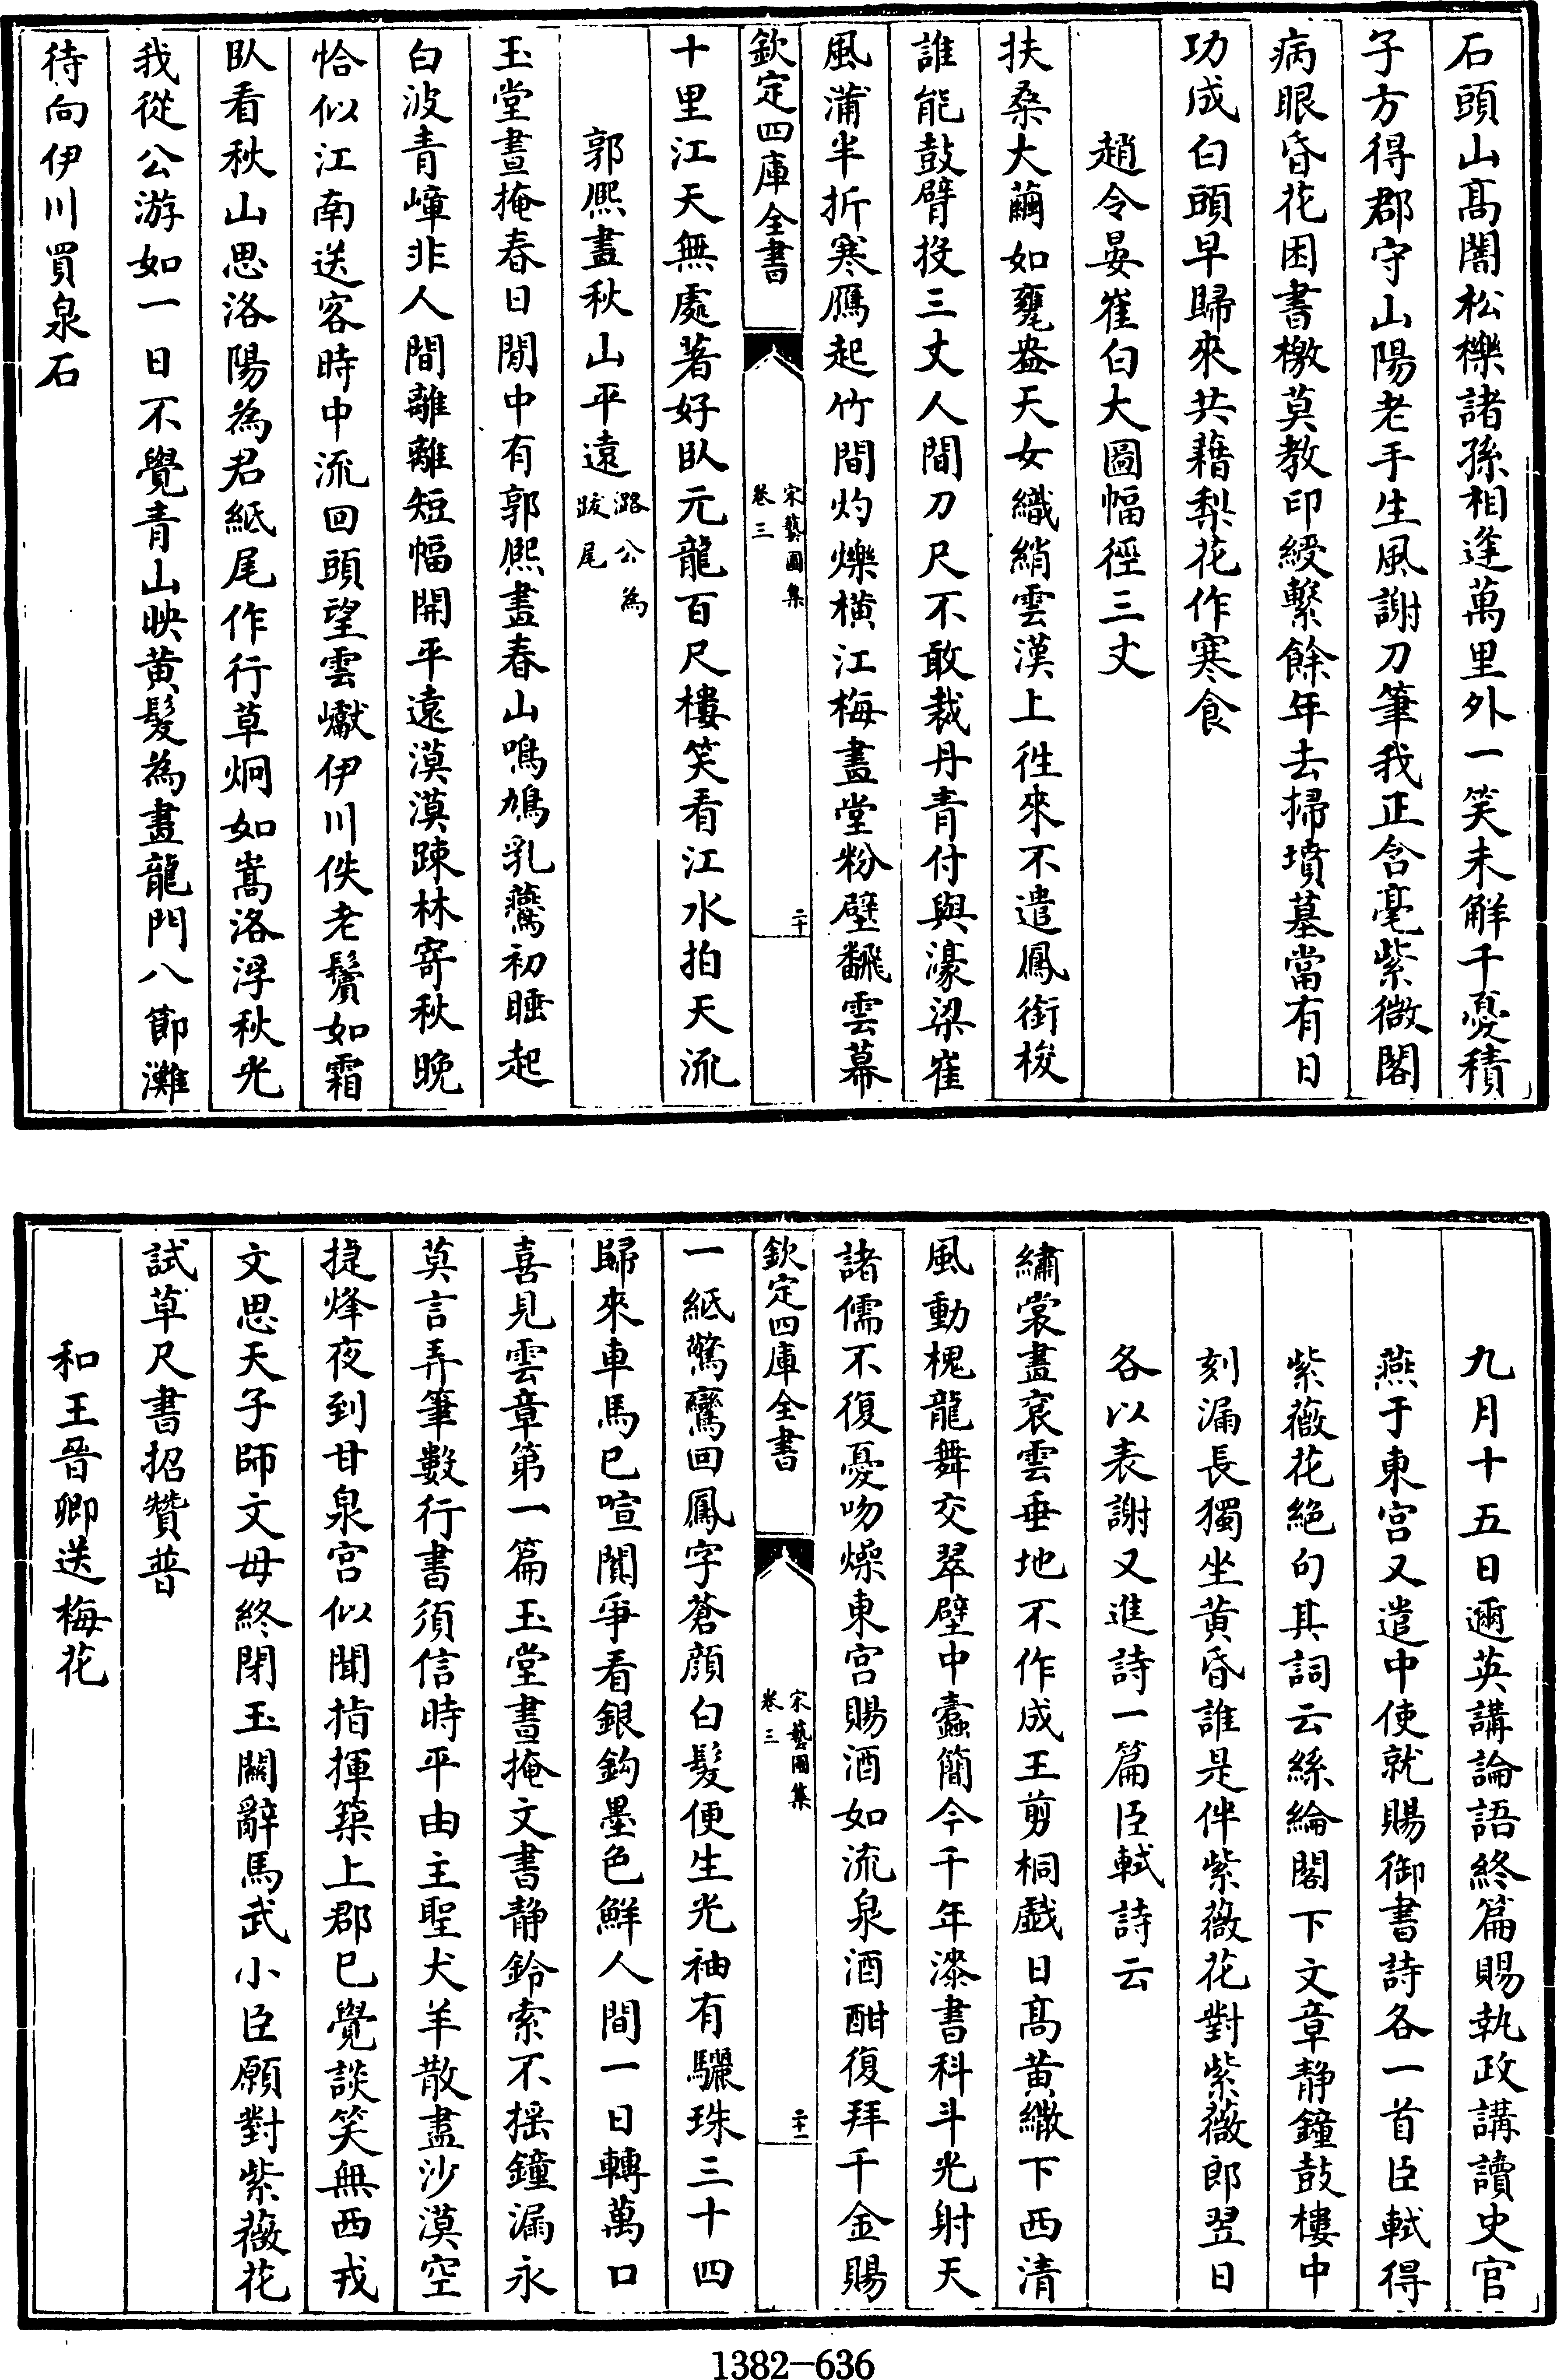 石頭山髙闇松櫟諸孫相逢萬里外一笑未解千憂積
子方得郡守山陽老手生風謝刀筆我正含毫紫微閣
病眼昏花困書檄莫教印綬繫餘年去掃墳墓當有日
功成白頭早歸來共藉梨花作寒食
趙令晏崔白大圖幅徑三丈
扶桑大繭如甕盎天女織綃雲漢上徃來不遣鳳銜梭
誰能鼓臂投三丈人間刀尺不敢裁丹青付與濠梁崔
風蒲半折寒鴈起竹間灼爍横江梅畫堂粉壁飜雲幕
欽定四庫全書
宋藝圃集
卷三
二十
十里江天無處著好臥元龍百尺樓笑看江水拍天流
郭熈畫秋山平遠潞公為跋尾
玉堂晝掩春日閒中有郭熈畫春山鳴鳩乳鷰初睡起
白波青嶂非人間離離短幅開平逺漠漠踈林寄秋晚
恰似江南送客時中流回頭望雲巘伊川佚老鬢如霜
臥看秋山思洛陽為君紙尾作行草炯如嵩洛浮秋光
我從公游如一日不覺青山映黄髪為畫龍門八節灘
待向伊川買泉石
九月十五日邇英講論語終篇賜執政講讀史官
燕于東宫又遣中使就賜御書詩各一首臣軾得
紫薇花絶句其詞云絲綸閣下文章静鐘鼓樓中
刻漏長獨坐黄昏誰是伴紫薇花對紫薇郎翌日
各以表謝又進詩一篇臣軾詩云
繡裳畫衮雲垂地不作成王剪桐戯日髙黄繖下西清
風動槐龍舞交翠壁中蠹簡今千年漆書科斗光射天
諸儒不復憂吻燥東宫賜酒如流泉酒酣復拜千金賜
欽定四庫全書
宋藝圃集
卷三
二十一
一紙驚鸞回鳳字蒼顔白髪便生光袖有驪珠三十四
歸來車馬已喧闐爭看銀鈎墨色鮮人間一日轉萬口
喜見雲章第一篇玉堂晝掩文書静鈴索不揺鐘漏永
莫言弄筆數行書須信時平由主聖犬羊散盡沙漠空
捷烽夜到甘泉宫似聞指揮築上郡已覺談笑無西戎
文思天子師文母終閉玉關辭馬武小臣願對紫薇花
試草尺書招贊普
和王晉卿送梅花
1382-636